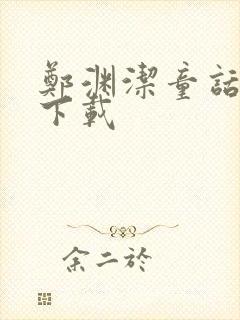 鄭渊潔童話
下載
余二於